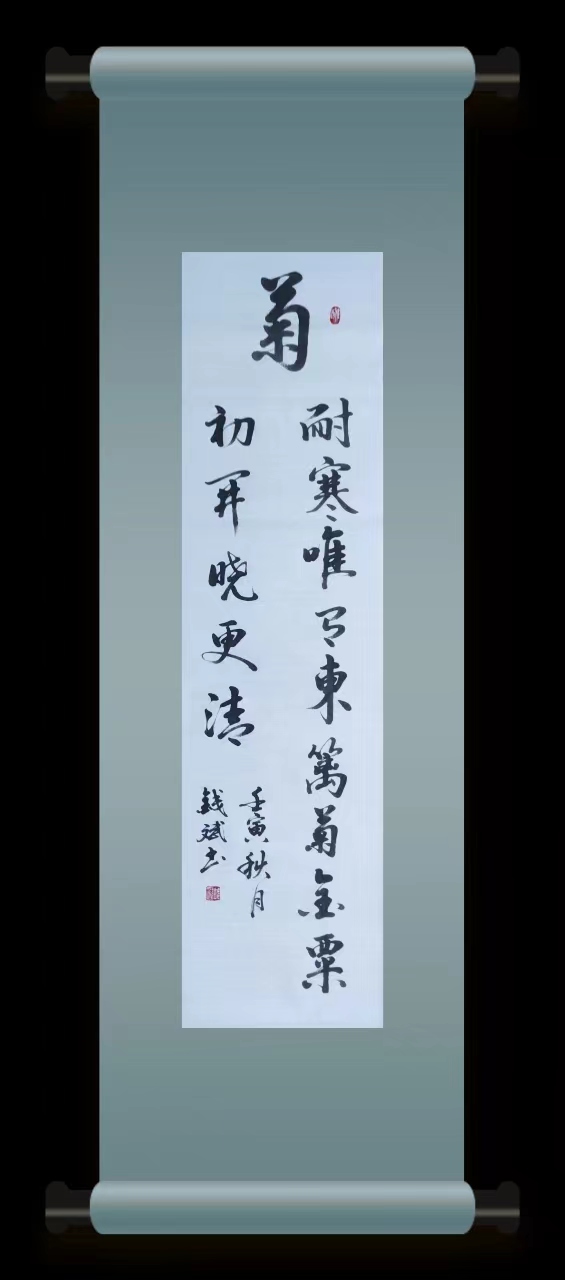 菊
耐寒唯有東篱菊金粟
初開晓更清
壬寅秋月
錢斌书